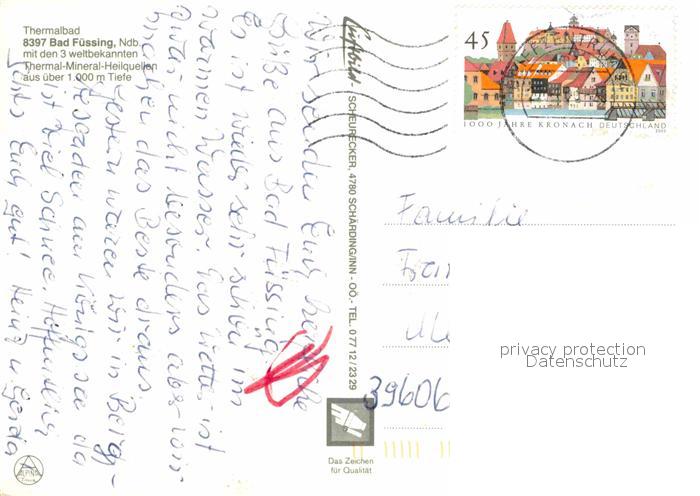 Thermalbad
8397 Bad Füssing, Ndb.
mit den 3 weltbekannten
Thermal-Mineral-Heilquellen
aus über 1.000 m Tiefe
Wir senden Euch herzliche
Grüße aus Bad Füssing
Es ist wieder sehr schön im
warmen Wasser. Das Wetter ist
zwar nicht besonders aber wir
machen das Beste draus.
Gestern waren wir in Berch-
tesgaden am Königssee da
ist viel Schnee. Hoffentlich
geht's Euch gut! Heinz u. Gerda
Luftbild - SCHEURECKER, 4780 SCHÄRDING/INN - OÖ. - TEL. 0 77 12 / 23 29
Das Zeichen
für Qualität
45
1000 JAHRE KRONACH DEUTSCHLAND
2003
Familie
39606
privacy protection
Datenschutz